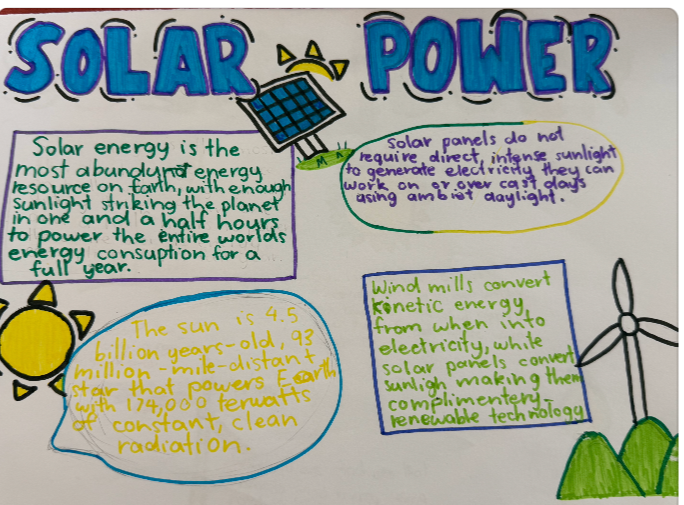 SOLAR POWER
Solar energy is the
most abundynt energy
resource on Earth, with enough
sunlight striking the planet
in one and a half hours
to power the entire worlds
energy consuption for a
full year.
Solar panels do not
require, direct, intense sunlight
to generate electricity they can
work on or over cast days
using ambiet daylight.
The sun is 4.5
billion years-old, 93
million-mile-distant
star that powers Earth
with 174,000 terwatts
of constant, clean
radiation.
Wind mills convert
kinetic energy
from when into
electricity, while
solar panels convert
sunligh making them
complimentery-
renewable technology